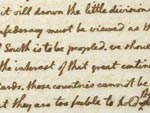 it will drown the little division
confederacy must be viewed as th
d South is to be peopled. we shou
the interest of that great contine
ards. those countries cannot be
but they are too feeble to hold